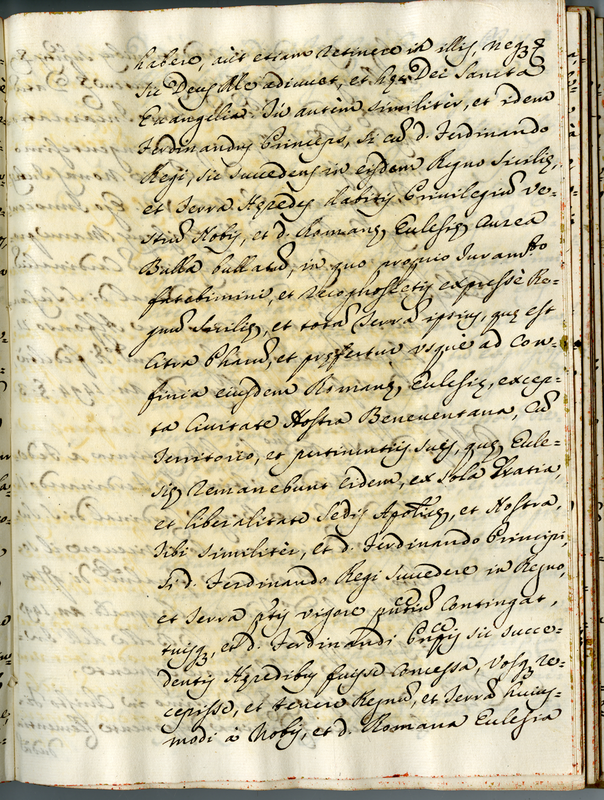 habere, aut etiam retinere in illis, neqȝ &
Sic Deus Me adiuvet, et hęc Dei Sancta
Evangelia. Tu autem similiter, et idem
Ferdinandus Princeps, si eũ d. Ferdinando
Regi, sic succedens in eisdem Regno Sicilię,
et Terra Hęredes dabitis Privilegiũ ve-
strũ Nobis, et d. Romanę Eclesię Aurea
Bulla bullatũ, in quo proprio Juramto
fatebimini, et recognoscetis expressè Re-
gnũ Sicilię, et totã Terrã ipsius, quę est
Citra Pharũ, et pręfertur usque ad Con-
finia eiusdem Romanę Eclesię, excep-
ta Civitate Nostra Beneventana, Cũ
Territorio, et pertinentijs suis, quę Ecle-
się remanebunt eidem, ex sola Gratia,
et liberalitate Sedis Aplicę, et Nostra,
Tibi similiter, et d. Ferdinando Principi,
Si d. Ferdinando Regi succedere in Regno,
et Terra ptis vigore pntiũ Contingat,
tuisqȝ, et d. Ferdinandi Pnpis sic succe-
dentis Hęredibus fuisse Concessa, vosqȝ re-
cepisse, et tenere Regnũ, et Terrã huius-
modi à Nobis, et d. Romana Eclesia